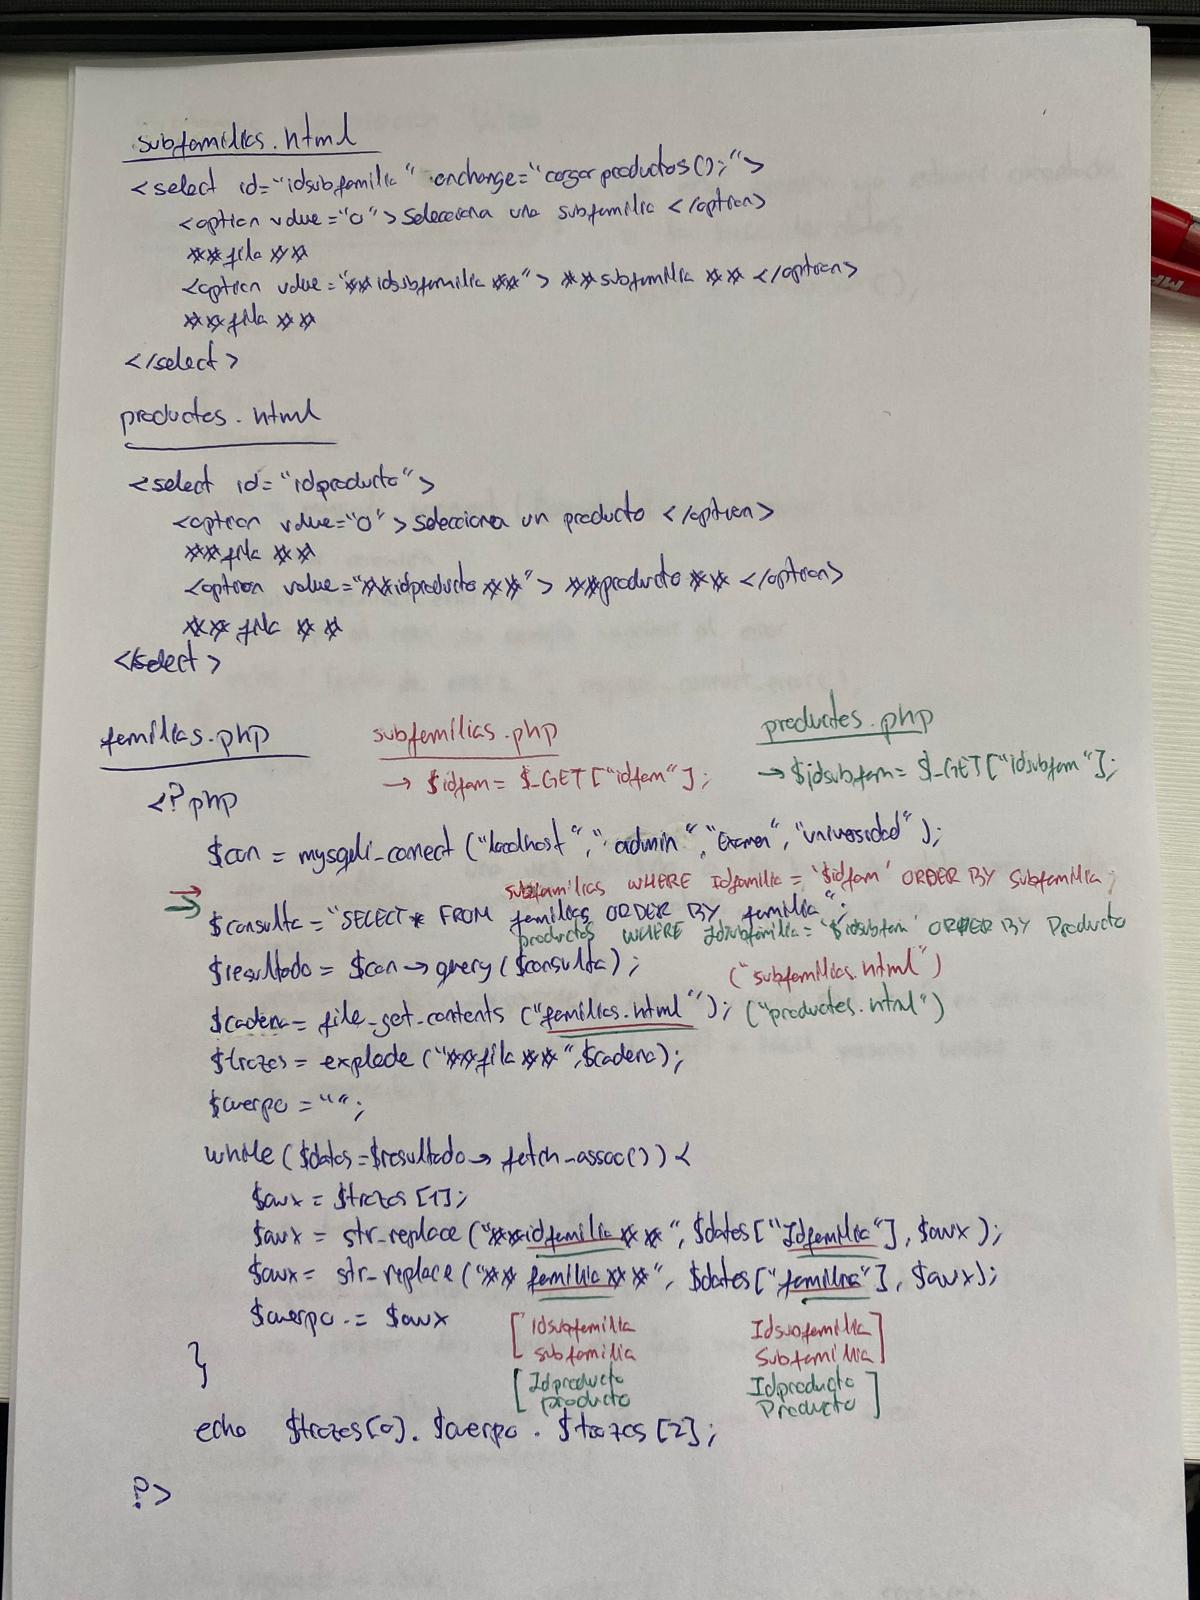 subfamilias.html
<select id="idsubfamilia" onchange="cargarproductos();">
<option value="0">Selecciona una subfamilia </option>
##fila##
<option value="##idsubfamilia##"> ##subfamilia## </option>
##fila##
</select>
productos.html
<select id="idproducto">
<option value="0">Selecciona un producto </option>
##fila##
<option value="##idproducto##"> ##producto## </option>
##fila##
</select>
familias.php
subfamilias.php
productos.php
→ $idfam = $_GET["idfam"];
→ $idsubfam = $_GET["idsubfam"];
<?php
$con = mysqli_connect ("localhost", "admin", "Examen", "universidad");
subfamilias WHERE Idfamilia = '$idfam' ORDER BY Subfamilia;
$consulta = "SELECT * FROM familias ORDER BY familia";
productos WHERE Idsubfamilia = '$idsubfam' ORDER BY Producto
$resultado = $con→query($consulta);
("subfamilias.html")
$cadena = file_get_contents ("familias.html"); ("productos.html")
$trozos = explode ("##fila##", $cadena);
$cuerpo = "";
while ($datos = $resultado→fetch_assoc()) {
$aux = $trozos[1];
$aux = str_replace ("##idfamilia##", $datos["Idfamilia"], $aux);
$aux = str_replace ("##familia##", $datos["familia"], $aux);
$cuerpo .= $aux
[Idsubfamilia
subfamilia
Idsubfamilia
Subfamilia]
}
[Idproducto
producto
Idproducto
Producto]
echo $trozos[0] . $cuerpo . $trozos[2];
?>